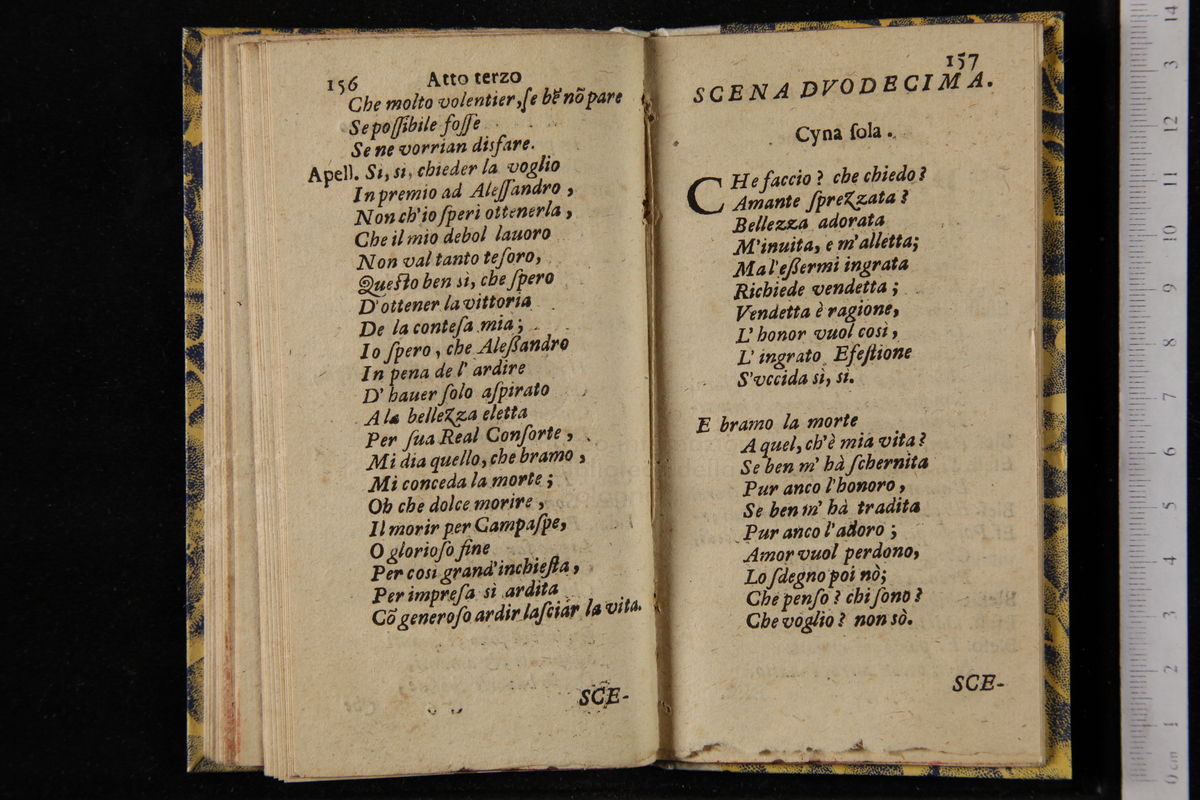 156 Atto terzo
Che molto volentier, ſe bẽ nõ pare
Se poſſibile foſſe
Se ne vorrian disfare.
Apell. Si, si, chieder la voglio
In premio ad Aleſſandro,
Non ch'io ſperi ottenerla,
Che il mio debol lauoro
Non val tanto teſoro,
Queſto ben sì, che ſpero
D'ottener la vittoria
De la conteſa mia;
Io ſpero, che Aleßandro
In pena de l' ardire
D' hauer ſolo aſpirato
A la bellezza eletta
Per ſua Real Conſorte,
Mi dia quello, che bramo,
Mi conceda la morte;
Oh che dolce morire,
Il morir per Campaſpe,
O glorioſo fine
Per cosi grand'inchieſta,
Per impreſa sì ardita
Cõ generoſo ardir laſciar la vita.
SCE-
157
SCENA DVODECIMA.
Cyna ſola.
CHe faccio? che chiedo?
Amante ſprezzata?
Bellezza adorata
M'inuita, e m'alletta;
Ma l'eßermi ingrata
Richiede vendetta;
Vendetta è ragione,
L' honor vuol così,
L' ingrato Efeſtione
S'vccida sì, sì.
E bramo la morte
A quel, ch'è mia vita?
Se ben m' hà ſchernita
Pur anco l'honoro,
Se ben m' hà tradita
Pur anco l'adoro;
Amor vuol perdono,
Lo ſdegno poi nò;
Che penſo? chi ſono?
Che voglio? non sò.
SCE-
0 cm 1 2 3 4 5 6 7 8 9 10 11 12 3 14